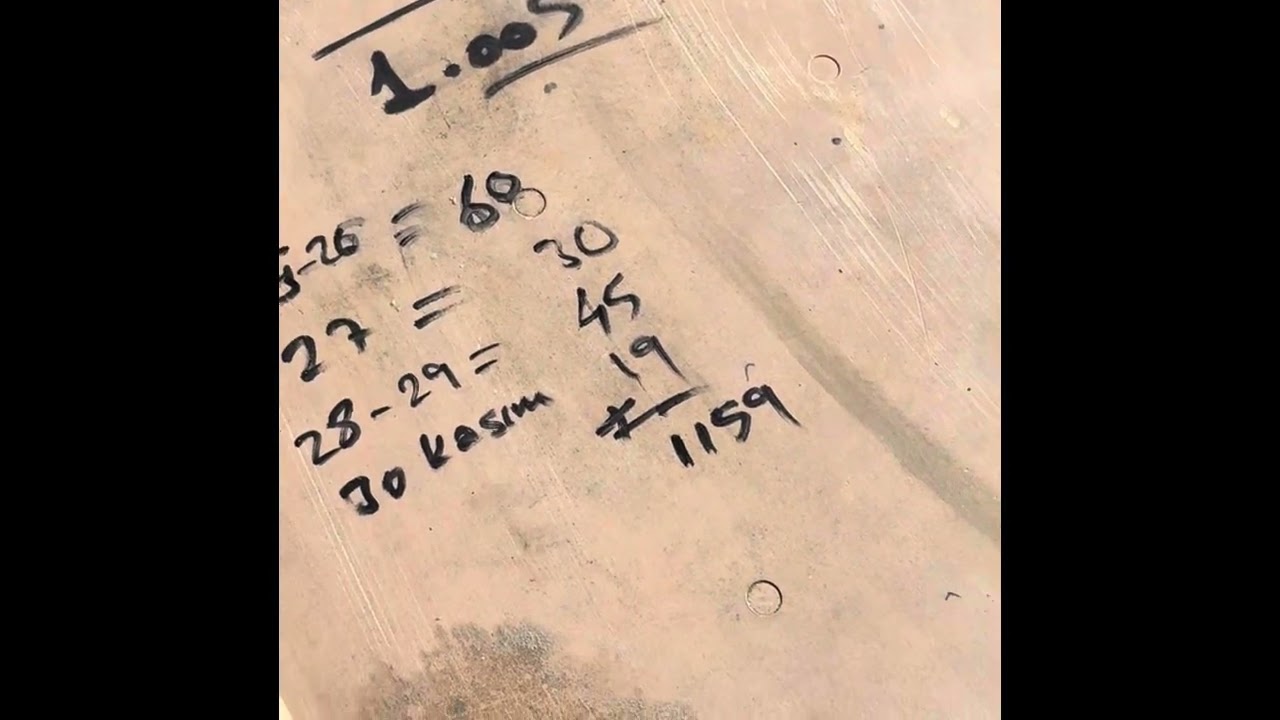 1.005
5-26 = 60
27 = 30
28-29 = 45
30 Kasım 19
+
1159